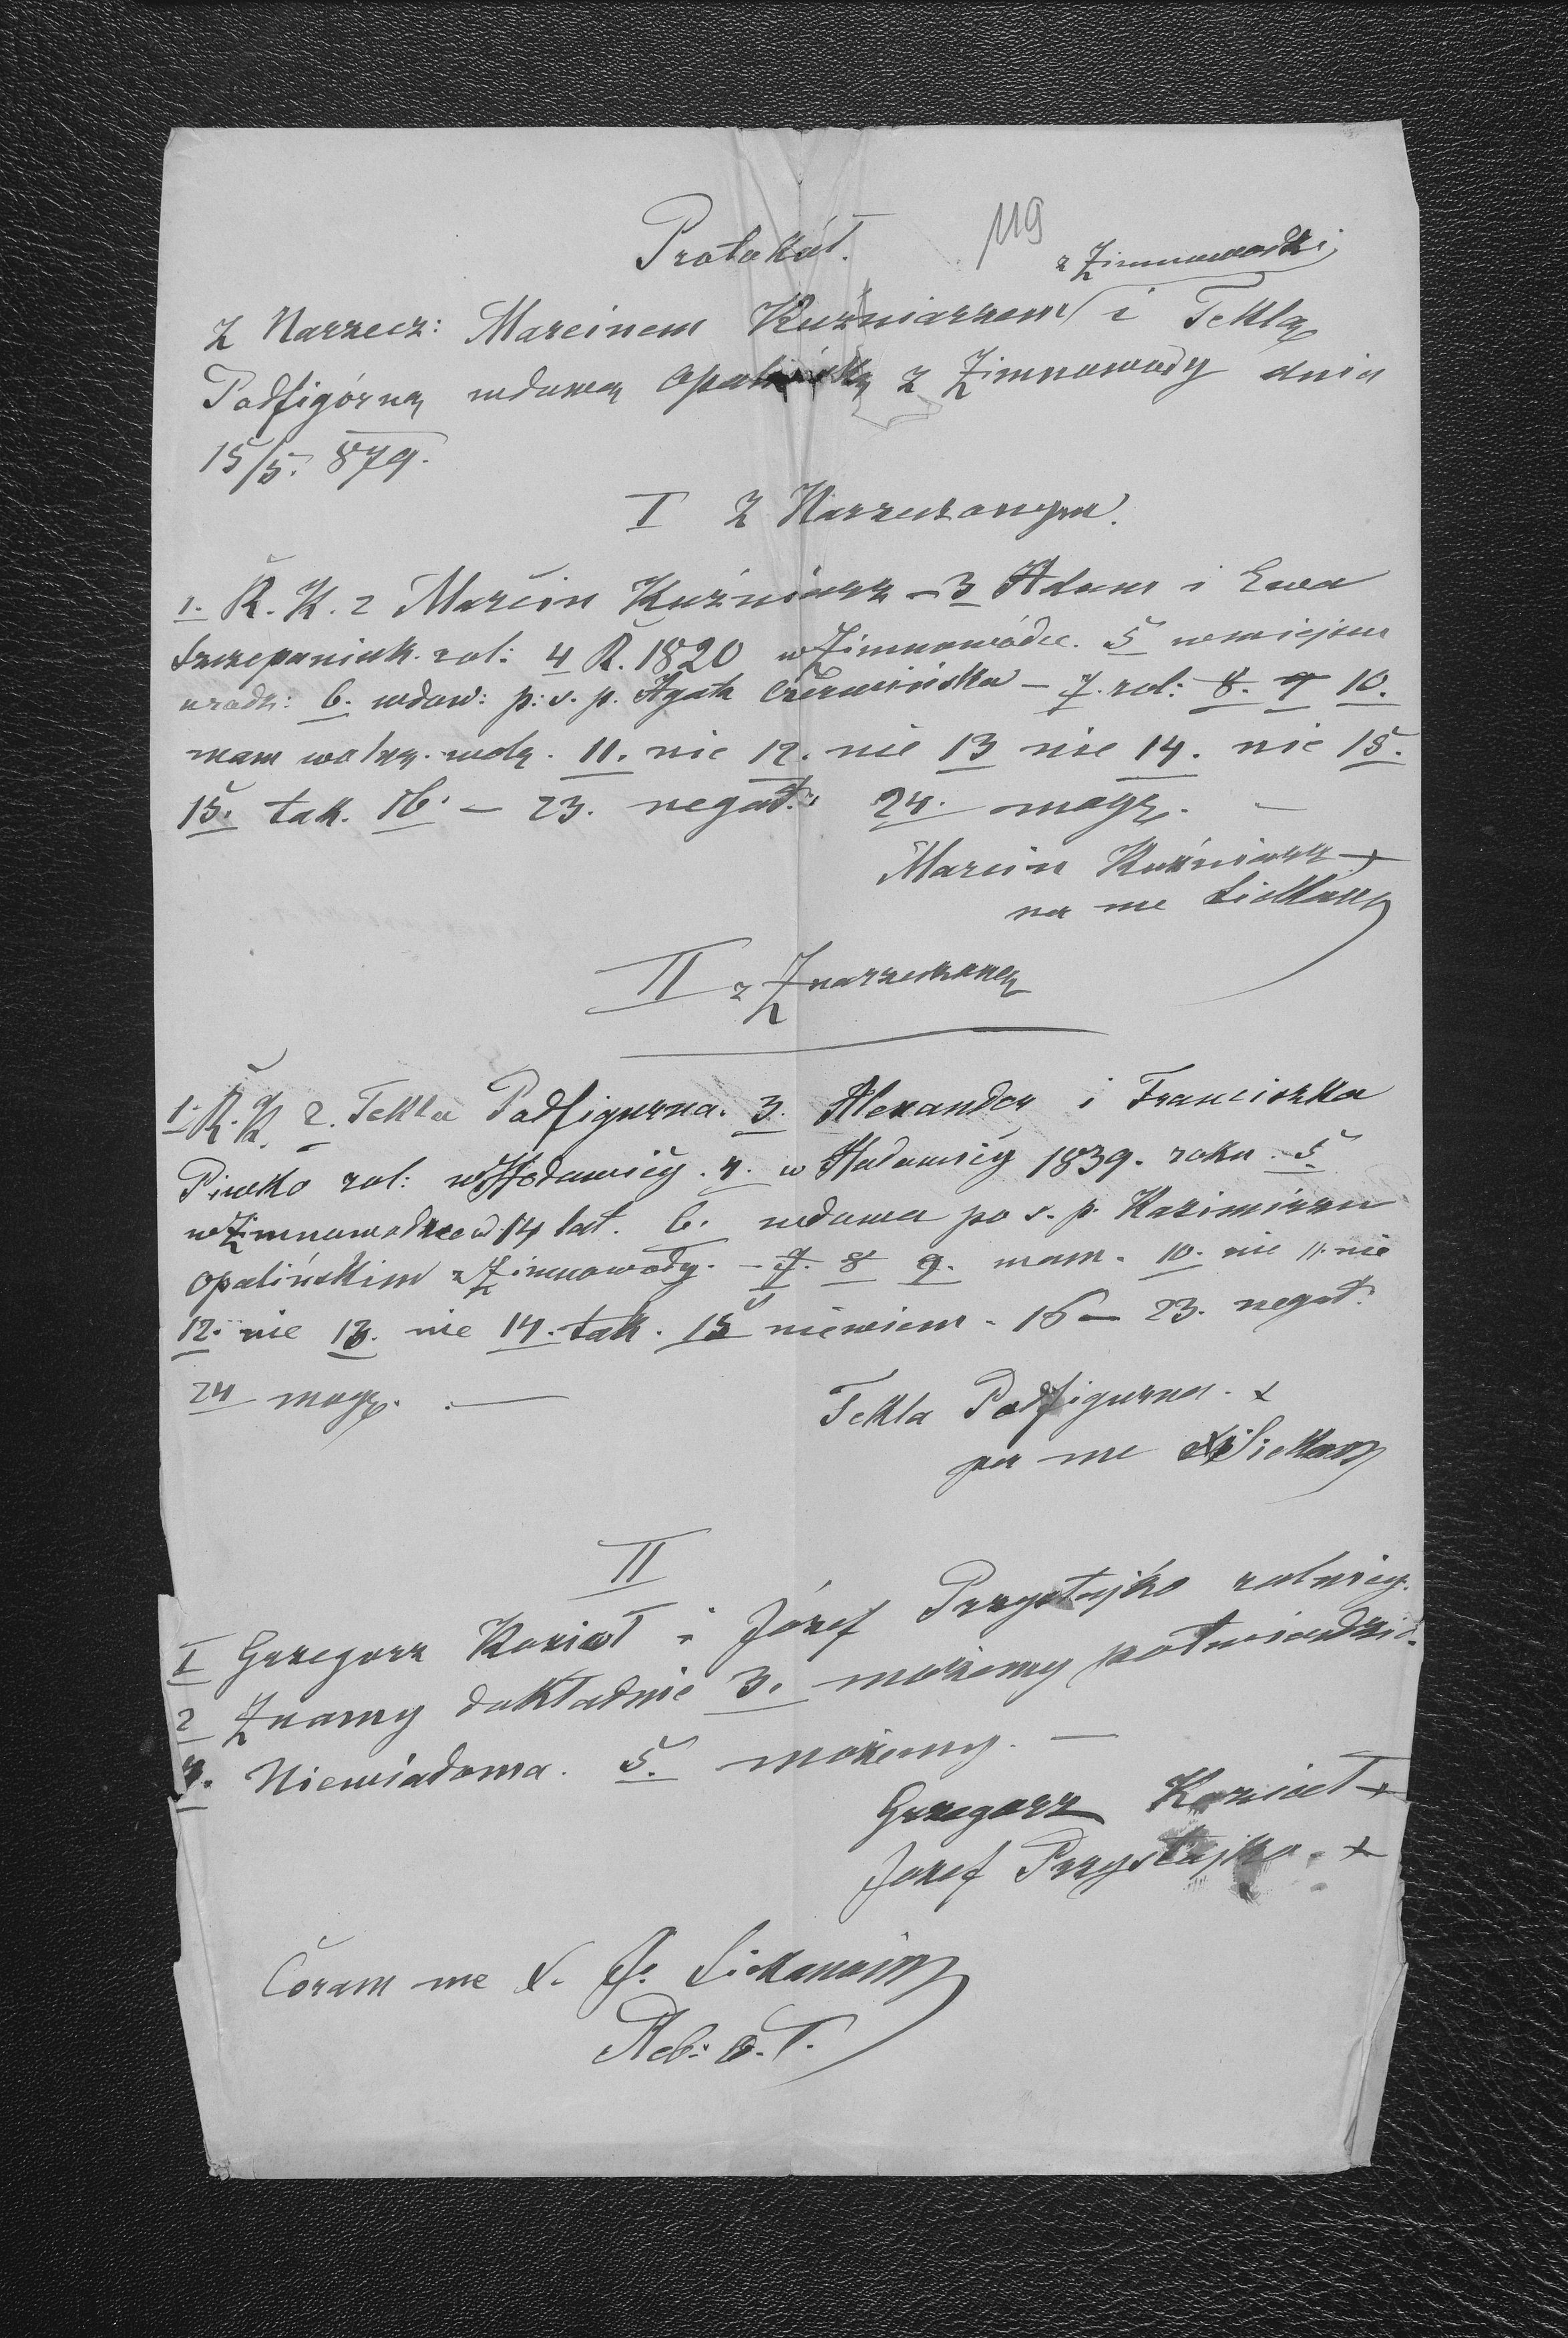 119
Protokół.
z Zimnowodki
Z Narzecz: Marcinem Kuźniarzem i Teklą
Podfigórną wdową Opalińską z Zimnowody dnia
15/5. 879.
I Z Narzeczonym.
1. R. K. 2 Marcin Kuźniarz - 3 Adam i Ewa
Szczepaniak. rol: 4 R. 1820 w Zimnowódce. 5 w miejscu
urodz: 6. wdow: p: ś. p. Agata Czerwińska - 7. rol: 8. 9 10.
mam wolną wolę. 11. nie 12. nie 13 nie 14. nie 15.
15. tak. 16. - 23. negat. 24. mogę. -
Marcin Kuźniarz +
na me
II z Z narzeczoną
1. R. K. 2. Tekla Podfigurna. 3. Alexander i Franciszka
Piwko rol: w Hodowicy. 4. w Hodowicy 1839. roku. 5.
w Zimnowodzce od 14 lat. 6. wdowa po ś. p. Kazimirzu
Opalińskim z Zimnowody. - 7. 8 9. mam. 10. nie 11. nie
12. nie 13. nie 14. tak. 15 niewiem. 16 - 23. negat.
24 mogę. -
Tekla Podfigurna. +
per me
II
I Grzegorz Kozioł i Józef Przystajko rolnicy.
2 Znamy dokładnie 3. możemy potwierdzić.
4. Niewiadoma. 5. możemy. -
Grzegorz Kozioł +
Jozef Przystajko. +
Coram me